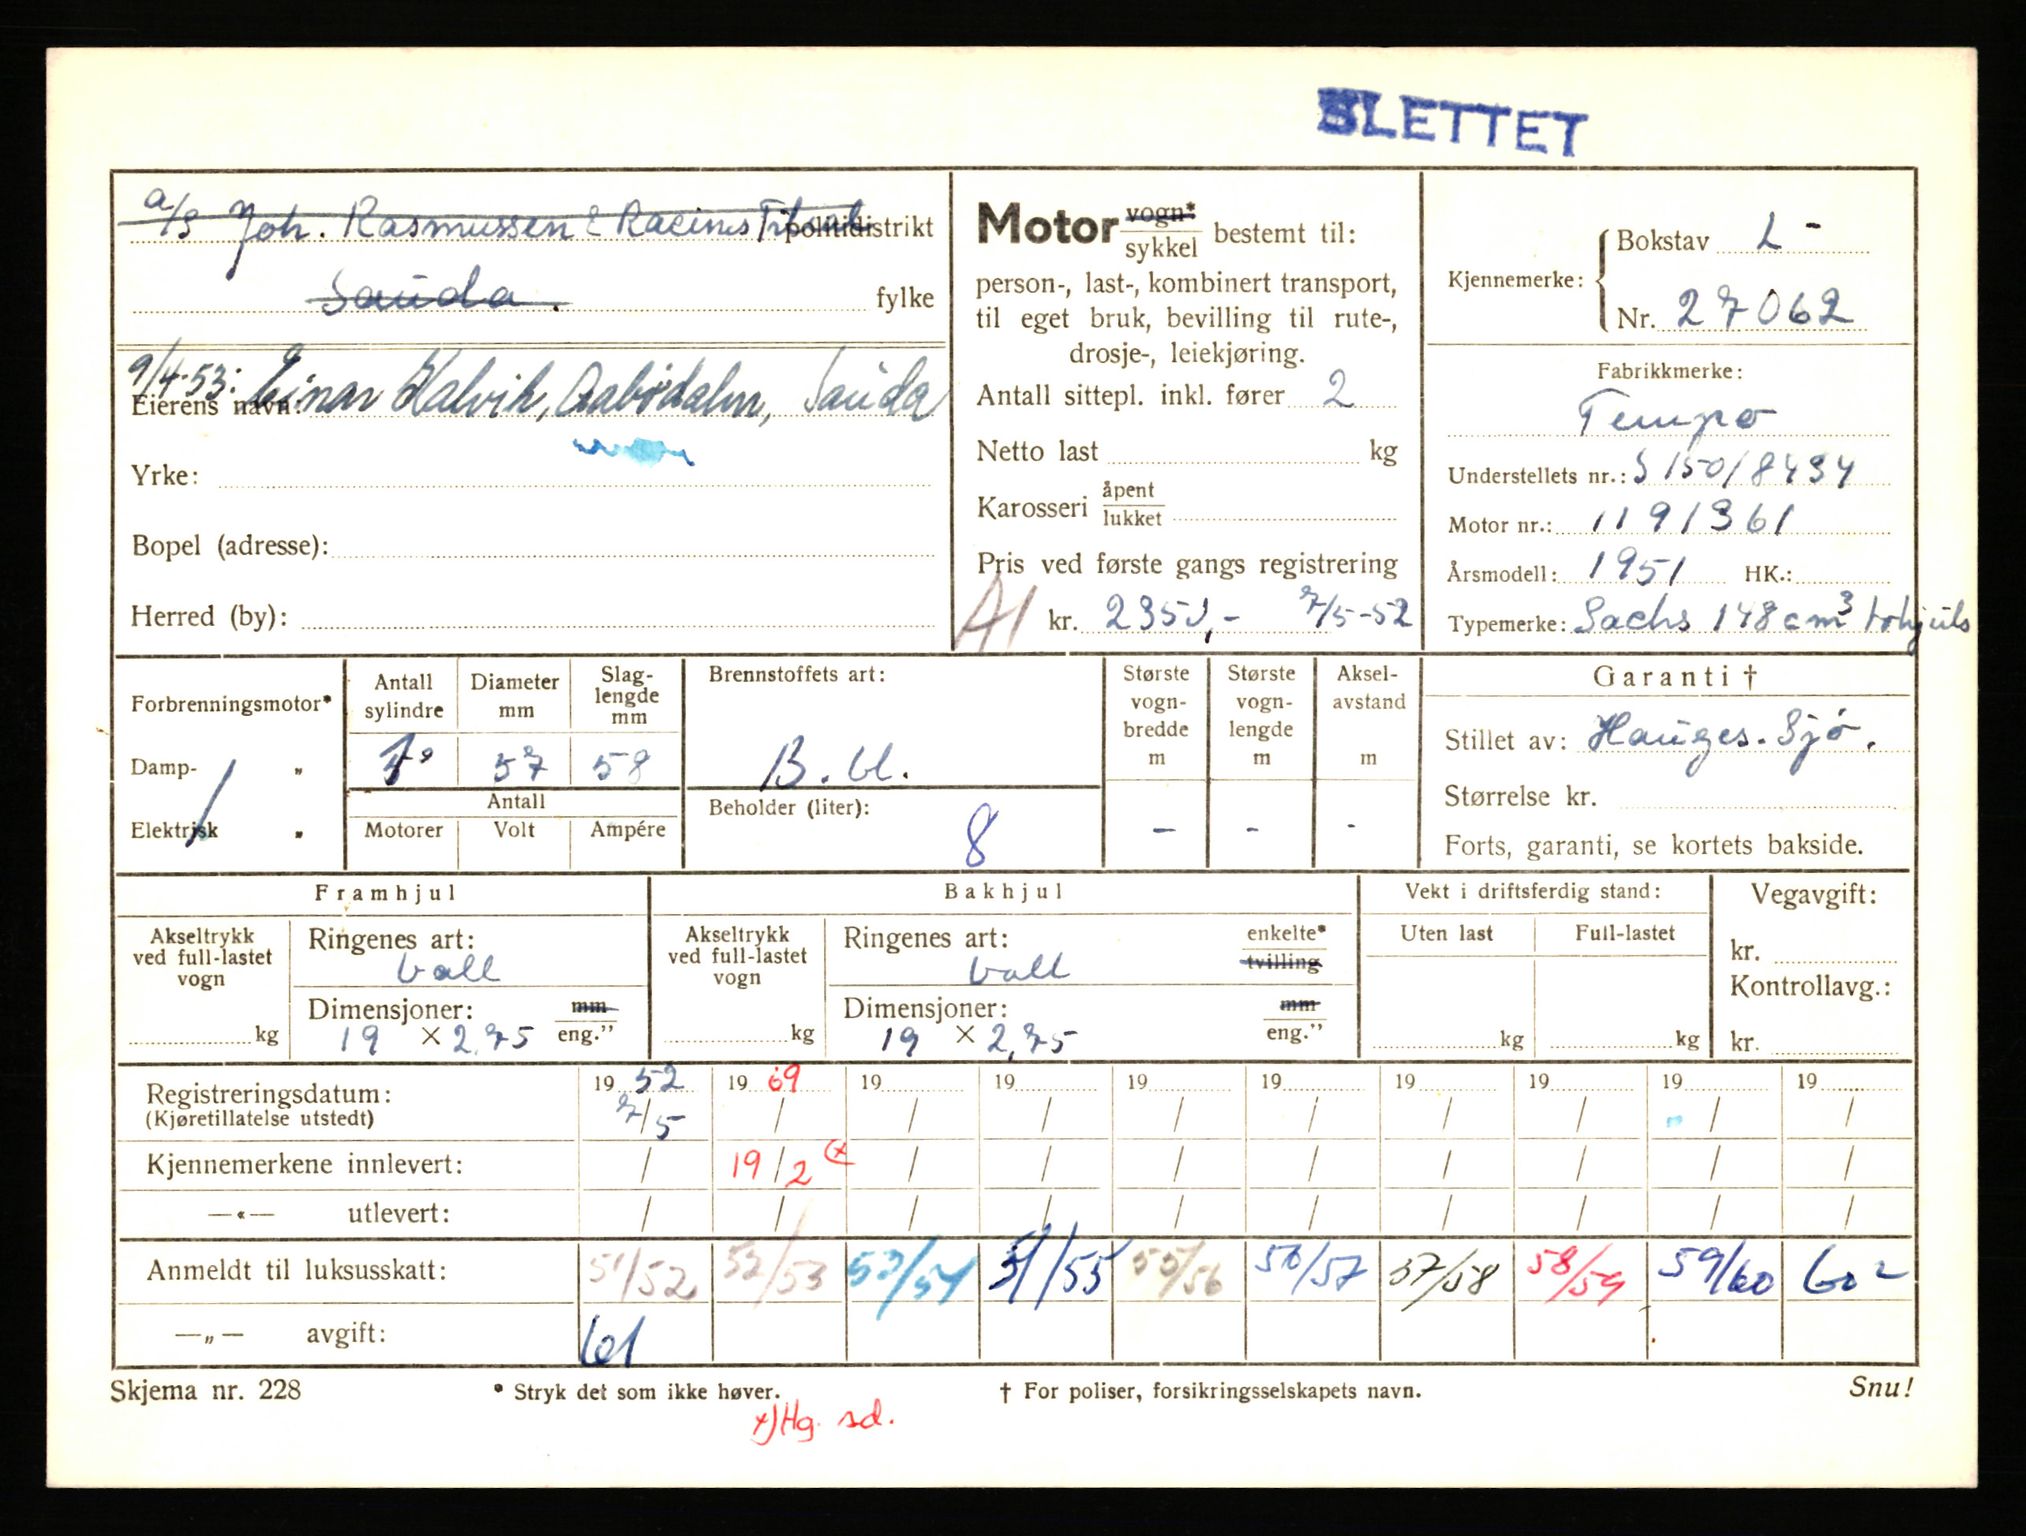 SLETTET
a/s Joh. Rasmussen & Racines politidistrikt
Sauda. fylke
9/4-53: Einar Halvik, Aabødalen, Sauda
Eierens navn:
Yrke:
Bopel (adresse):
Herred (by):
Motor vogn* sykkel bestemt til:
person-, last-, kombinert transport,
til eget bruk, bevilling til rute-,
drosje-, leiekjøring.
Antall sittepl. inkl. fører 2
Netto last kg
Karosseri åpent lukket
Pris ved første gangs registrering
A1 kr. 2350,- 7/5-52
Kjennemerke: Bokstav L-
Nr. 27062
Fabrikkmerke:
Tempo
Understellets nr.: S 150/8434
Motor nr.: 1191361
Årsmodell: 1951 HK.:
Typemerke: Sachs 148 cm3 tohjuls
Forbrenningsmotor*
Damp- „
Elektrisk „
Antall sylindre
Diameter mm
Slag-lengde mm
57 58
Antall
Motorer Volt Ampére
Brennstoffets art:
B. bl.
Beholder (liter):
8
Største vogn-bredde m
Største vogn-lengde m
Aksel-avstand m
- - -
Garanti †
Stillet av: Hauges. Sjø.
Størrelse kr.
Forts, garanti, se kortets bakside.
Framhjul
Akseltrykk ved full-lastet vogn
kg
Ringenes art:
ball
Dimensjoner: mm
19 × 2,75 eng.”
Bakhjul
Akseltrykk ved full-lastet vogn
kg
Ringenes art: enkelte*
ball tvilling
Dimensjoner: mm
19 × 2,75 eng.”
Vekt i driftsferdig stand:
Uten last Full-lastet
kg kg
Vegavgift:
kr.
Kontrollavg.:
kr.
19 52 19 69 19 19 19 19 19 19 19 19
Registreringsdatum: 7/5 / / / / / / / / /
(Kjøretillatelse utstedt)
Kjennemerkene innlevert: / 19/2 x / / / / / / / /
—«— utlevert: / / / / / / / / / /
Anmeldt til luksusskatt: 51/52 52/53 53/54 54/55 55/56 56/57 57/58 58/59 59/60 60
—„— avgift: 61
Skjema nr. 228 * Stryk det som ikke høver. † For poliser, forsikringsselskapets navn. Snu!
x) Hg. sd.